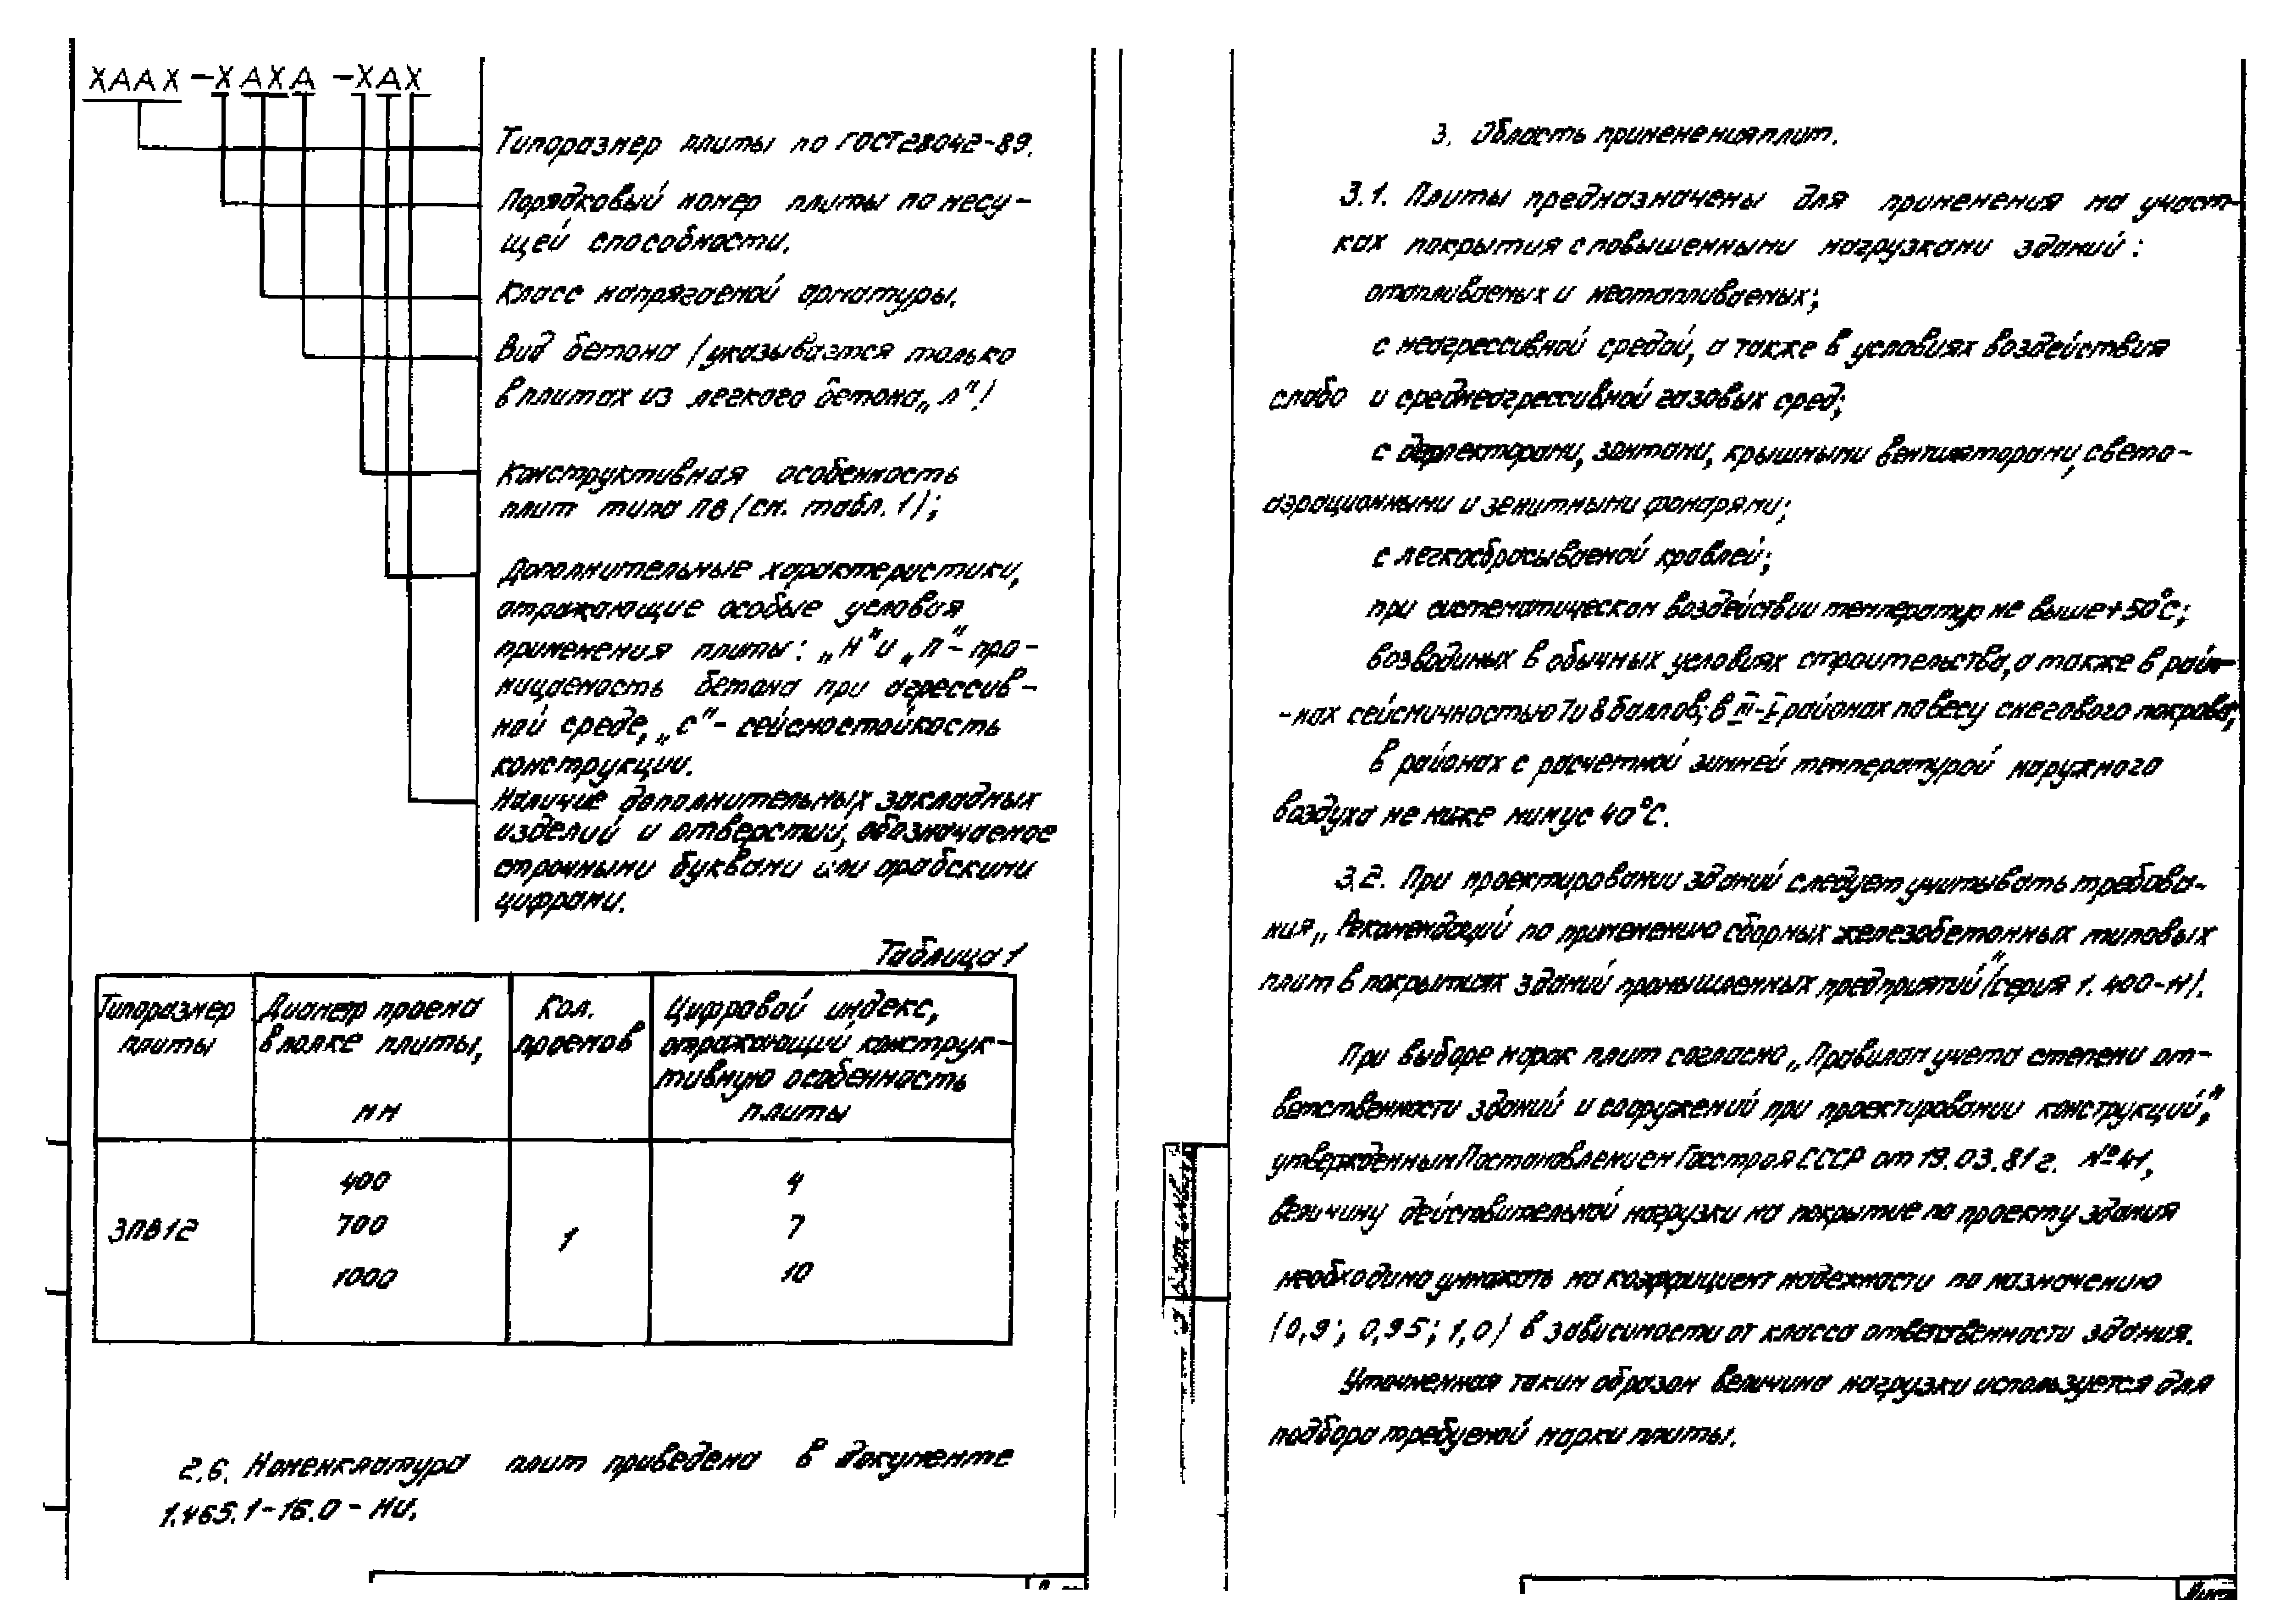 ХААХ -ХАХА -ХАХ
Типоразмер плиты по ГОСТ 28042-89.
Порядковый номер плиты по несу-
щей способности.
Класс напрягаемой арматуры.
Вид бетона (указывается только
в плитах из легкого бетона „Л")
Конструктивная особенность
плит типа ПВ (см. табл. 1);
Дополнительные характеристики,
отражающие особые условия
применения плиты: „Н" и „П" - про-
ницаемость бетона при агрессив-
ной среде, „С" - сейсмостойкость
конструкции.
Наличие дополнительных закладных
изделий и отверстий, обозначаемое
строчными буквами или арабскими
цифрами.
Таблица 1
Типоразмер плиты
Диаметр проема в полке плиты, мм
Кол. проемов
Цифровой индекс, отражающий конструк-
тивную особенность плиты
400 4
3ПВ12 700 1 7
1000 10
2.6. Номенклатура плит приведена в документе
1.465.1-16.0 - НИ.
3. Область применения плит.
3.1. Плиты предназначены для применения на участ-
ках покрытия с повышенными нагрузками зданий:
отапливаемых и неотапливаемых;
с неагрессивной средой, а также в условиях воздействия
слабо и среднеагрессивной газовых сред;
с дефлекторами, зонтами, крышными вентиляторами, свето-
аэрационными и зенитными фонарями;
с легкосбрасываемой кровлей;
при систематическом воздействии температур не выше +50°С;
возводимых в обычных условиях строительства, а также в райо-
-нах сейсмичностью 7 и 8 баллов; в III-I районах по весу снегового покрова;
в районах с расчетной зимней температурой наружного
воздуха не ниже минус 40°С.
3.2. При проектировании зданий следует учитывать требова-
ния „Рекомендаций по применению сборных железобетонных типовых
плит в покрытиях зданий промышленных предприятий" (серия 1.400-11).
При выборе марок плит согласно „Правилам учета степени от-
ветственности зданий и сооружений при проектировании конструкций",
утвержденным Постановлением Госстроя СССР от 19.03.81 г. №41,
величину действительной нагрузки на покрытие по проекту здания
необходимо умножать на коэффициент надежности по назначению
(0,9; 0,95; 1,0) в зависимости от класса ответственности здания.
Уточненная таким образом величина нагрузки используется для
подбора требуемой марки плиты.
Лист